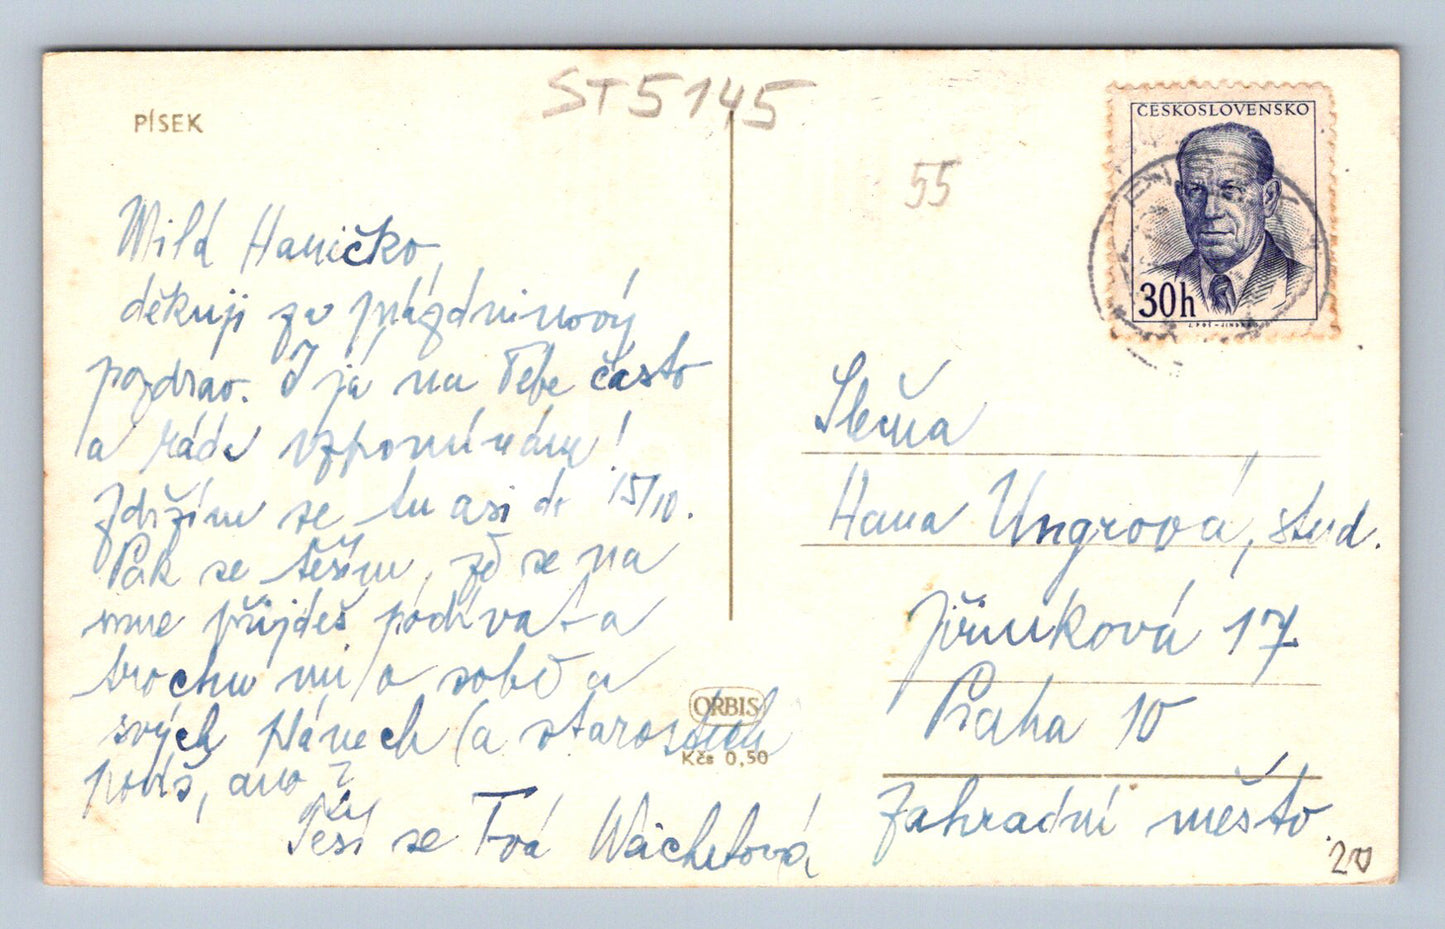 ST5145
PÍSEK
55
ČESKOSLOVENSKO
30h
Milá Haničko,
děkuji za prázdninový
pozdrav. I já na Tebe často
a ráda vzpomínám!
Zdržím se tu asi do 15/10.
Pak se těším, že se na
mne přijdeš podívat a
trochu mi o sobě a
svých plánech (a starostech
povíš, ano?
Těší se Tvá Wachetová
ORBIS
Kčs 0,50
Slečna
Hana Ungrová, stud.
Jiřinková 17
Praha 10
Zahradní město.
20